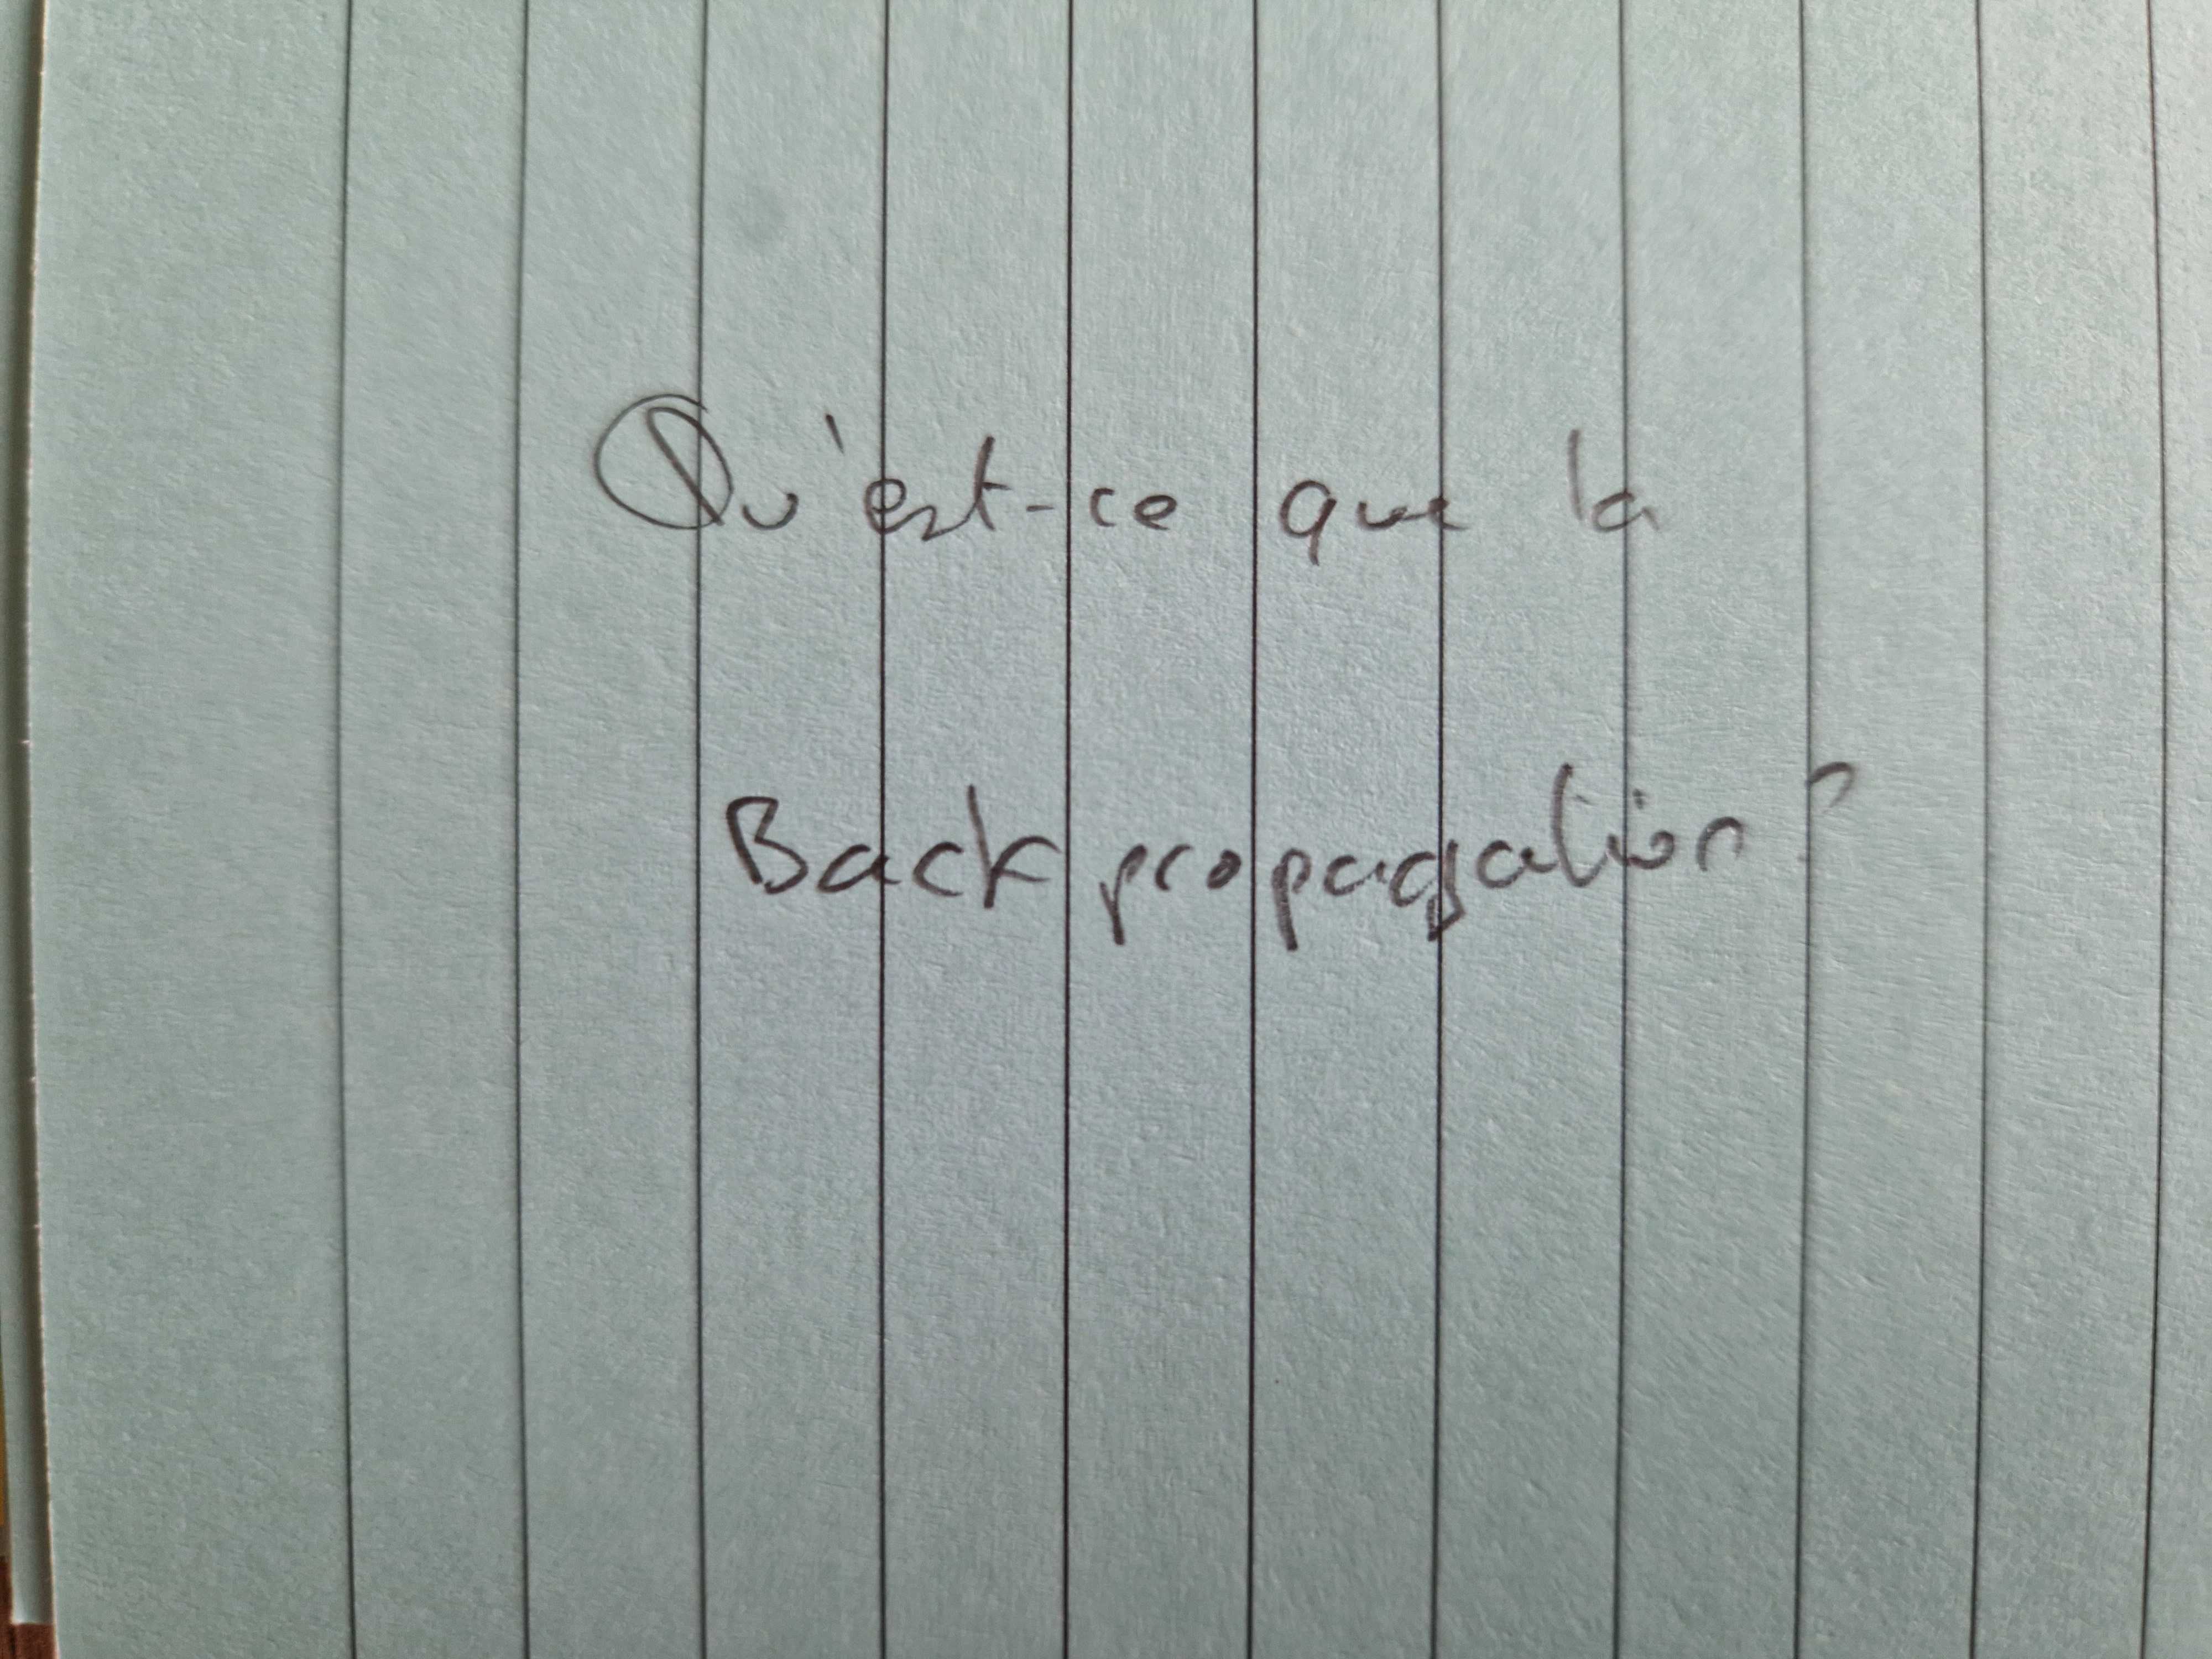 Qu'est-ce que la
Back propagation?